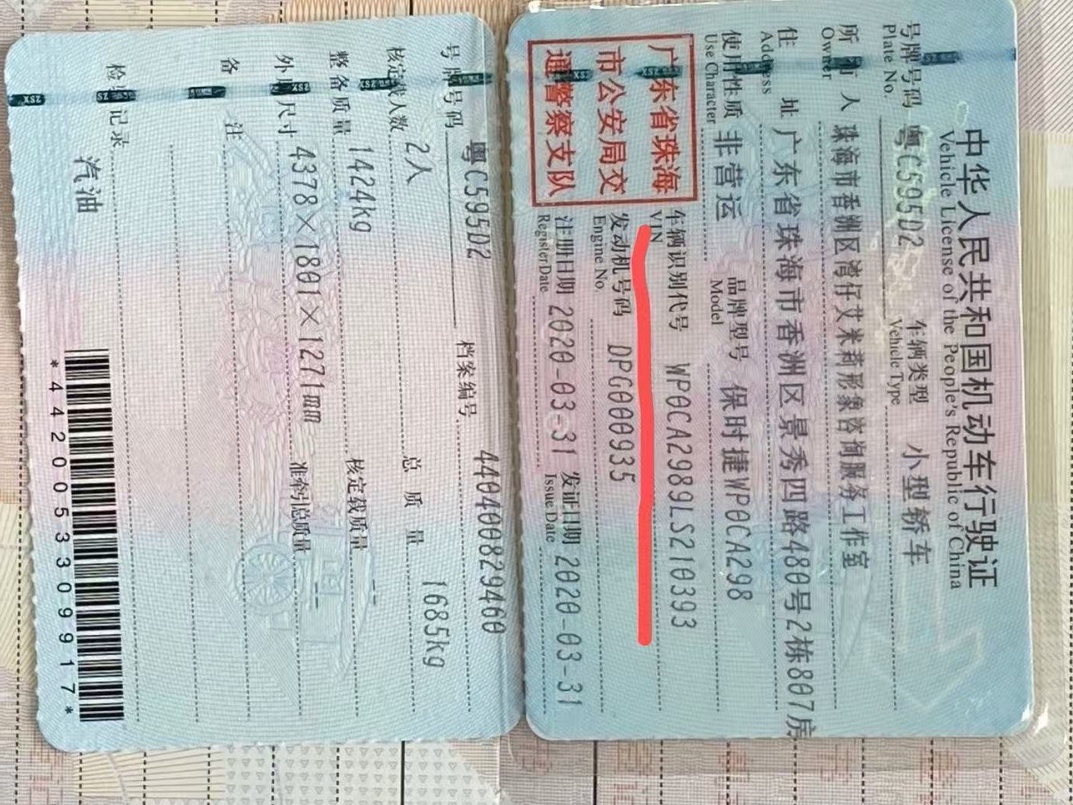 中华人民共和国机动车行驶证
Vehicle License of the People's Republic of China
号牌号码 粤C595D2 车辆类型 小型轿车
Plate No. Vehicle Type
所有人 珠海市香洲区湾仔艾米莉形象咨询服务工作室
Owner
住址 广东省珠海市香洲区景秀四路480号2栋807房
Address
使用性质 非营运 品牌型号 保时捷WP0CA298
Use Character Model
广东省珠海
市公安局交
通警察支队
车辆识别代号 WP0CA2989LS210393
VIN
发动机号码 DPG000935
Engine No.
注册日期 2020-03-31 发证日期 2020-03-31
Register Date Issue Date
号牌号码 粤C595D2 档案编号 440400829460
核定载人数 2人 总质量 1685kg
整备质量 1424kg 核定载质量 --
外廓尺寸 4378×1801×1271mm 准牵引总质量 --
备注
检验记录
汽油
*4420053309917*